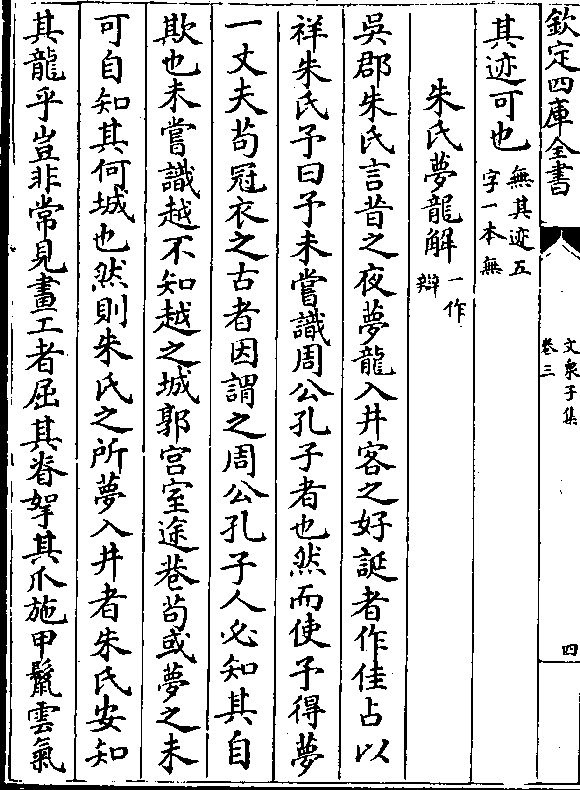 欽定四庫全書
文泉子集
卷三
四
其迹可也無其迹五
字一本無
朱氏夢龍解一作
辯
吳郡朱氏言昔之夜夢龍入井客之好誕者作佳占以
祥朱氏予曰予未嘗識周公孔子者也然而使予得夢
一丈夫苟冠衣之古者因謂之周公孔子人必知其自
欺也未嘗識越不知越之城郭宫室途巷苟或夢之未
可自知其何城也然則朱氏之所夢入井者朱氏安知
其龍乎豈非常見畫工者屈其脊拏其爪施甲鬣雲氣